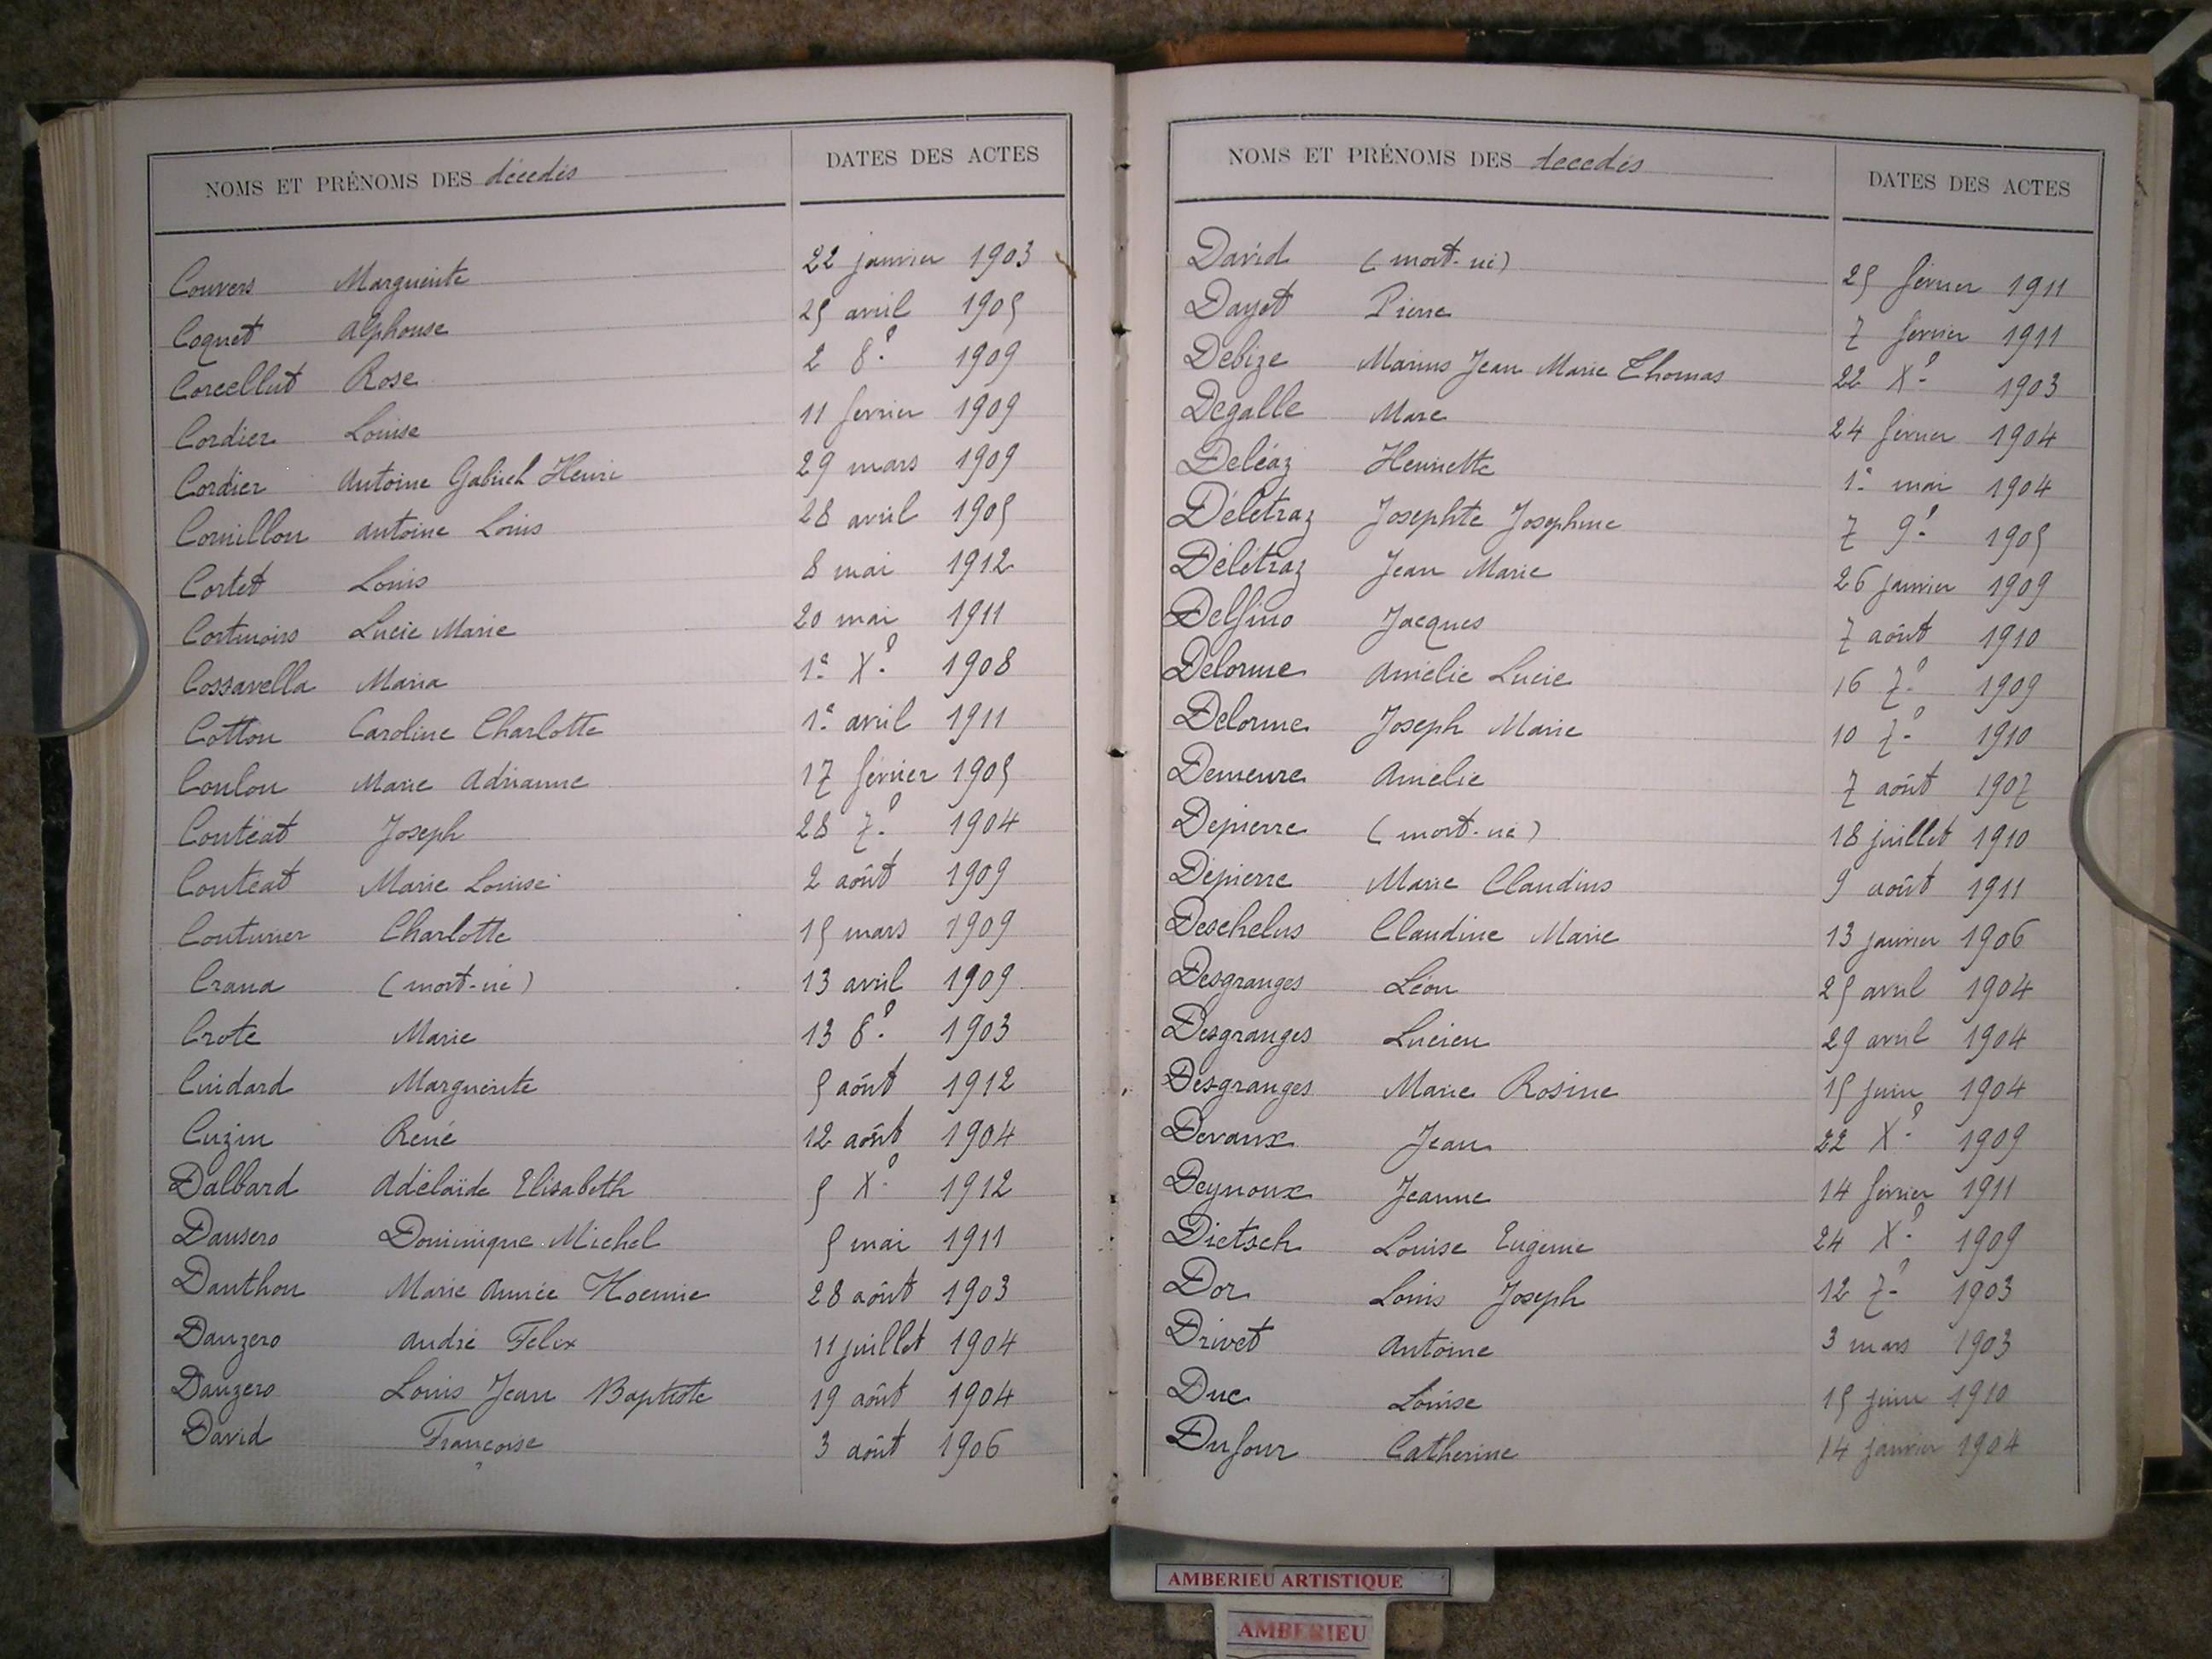 NOMS ET PRÉNOMS DES décédés DATES DES ACTES
Couvers Marguerite 22 janvier 1903
Coquet Alphonse 25 avril 1905
Corcellut Rose 2 8e 1909
Cordier Louise 11 février 1909
Cordier Antoine Gabriel Henri 29 mars 1909
Cornillon Antoine Louis 28 avril 1905
Cortet Louis 8 mai 1912
Cortinois Lucie Marie 20 mai 1911
Cossavella Maria 1e Xe 1908
Cotton Caroline Charlotte 1e avril 1911
Coulon Marie Adrianne 17 février 1905
Coutéat Joseph 28 7e 1904
Coutéat Marie Louise 2 août 1909
Couturier Charlotte 15 mars 1909
Crana (mort-né) 13 avril 1909
Crote Marie 13 8e 1903
Cuidard Marguerite 5 août 1912
Cuzin René 12 août 1904
Dalbard Adélaïde Elisabeth 5 Xe 1912
Dansero Dominique Michel 5 mai 1911
Danthon Marie Année Noemie 28 août 1903
Danzero André Félix 11 juillet 1904
Danzero Louis Jean Baptiste 19 août 1904
David Françoise 3 août 1906
NOMS ET PRÉNOMS DES décédés DATES DES ACTES
David (mort-né) 25 février 1911
Dayet Pierre 7 février 1911
Debize Marius Jean Marie Thomas 22 Xe 1903
Degalle Marc 24 février 1904
Deléaz Henriette 1e mai 1904
Délétraz Josephte Josephine 7 9e 1905
Délétraz Jean Marie 26 janvier 1909
Delfino Jacques 7 août 1910
Delorme Amélie Lucie 16 7e 1909
Delorme Joseph Marie 10 7e 1910
Demeure Amélie 7 août 1907
Depierre (mort-né) 18 juillet 1910
Dépierre Marie Claudius 9 août 1911
Deschelus Claudine Marie 13 janvier 1906
Desgranges Léon 25 avril 1904
Desgranges Lucien 29 avril 1904
Desgranges Marie Rosine 15 juin 1904
Devaux Jean 22 Xe 1909
Deynoux Jeanne 14 février 1911
Dietsch Louise Eugenie 24 Xe 1909
Dor Louis Joseph 12 7e 1903
Drivet Antoine 3 mars 1903
Duc Louise 15 juin 1910
Dufour Catherine 14 janvier 1904
AMBERIEU ARTISTIQUE
AMBERIEU